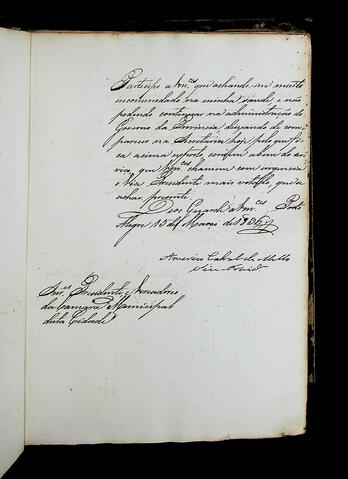 Participo a Vm.ces que achando me muito
incommodado na minha saude, e não
podendo continuar na administração do
Governo da Provincia, deixando de com-
parecer na Secretaria hoje, pelo que fi-
ca acima exposto, convém a bem do ser-
viço, que Vm.ces chamem com urgencia
o Vice Presidente mais votado, que se
achar presente.
Deos Guarde a Vm.ces Porto
Alegre 15 de Março de
Americo Cabral de Mello
Vice Presid.e
Snr.es Presidente, e Vereadores
da Camara Municipal
desta Cidade